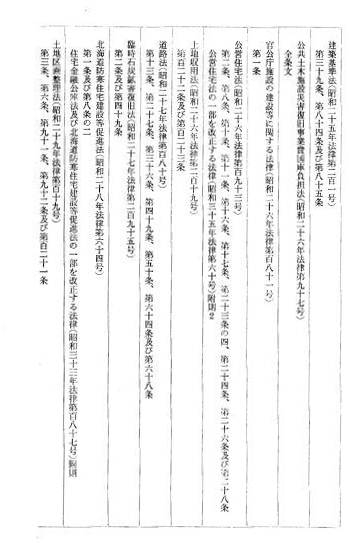 建築基準法(昭和二十五年法律第二百一号)
第三十九条、第八十四条及び第八十五条
公共土木施設災害復旧事業費国庫負担法(昭和二十六年法律第九十七号)
全条文
官公庁施設の建設等に関する法律(昭和二十六年法律第百八十一号)
第一条
公営住宅法(昭和二十六年法律第百九十三号)
第二条、第八条、第十条、第十一条、第十六条、第十七条、第二十三条の四、第二十四条、第二十六条及び第二十八条
公営住宅法の一部を改正する法律(昭和三十五年法律第六十号)附則2
土地収用法(昭和二十六年法律第二百十九号)
第百二十二条及び第百二十三条
道路法(昭和二十七年法律第百八十号)
第十三条、第二十七条、第三十六条、第四十九条、第五十条、第六十四条及び第六十八条
臨時石炭鉱害復旧法(昭和二十七年法律第二百九十五号)
第二条及び第四十九条
北海道防寒住宅建設等促進法(昭和二十八年法律第六十四号)
第一条及び第八条の二
住宅金融公庫法及び北海道防寒住宅建設等促進法の一部を改正する法律(昭和三十三年法律第百八十七号)附則
土地区画整理法(昭和二十九年法律第百十九号)
第三条、第六条、第九十一条、第九十二条及び第百二十一条